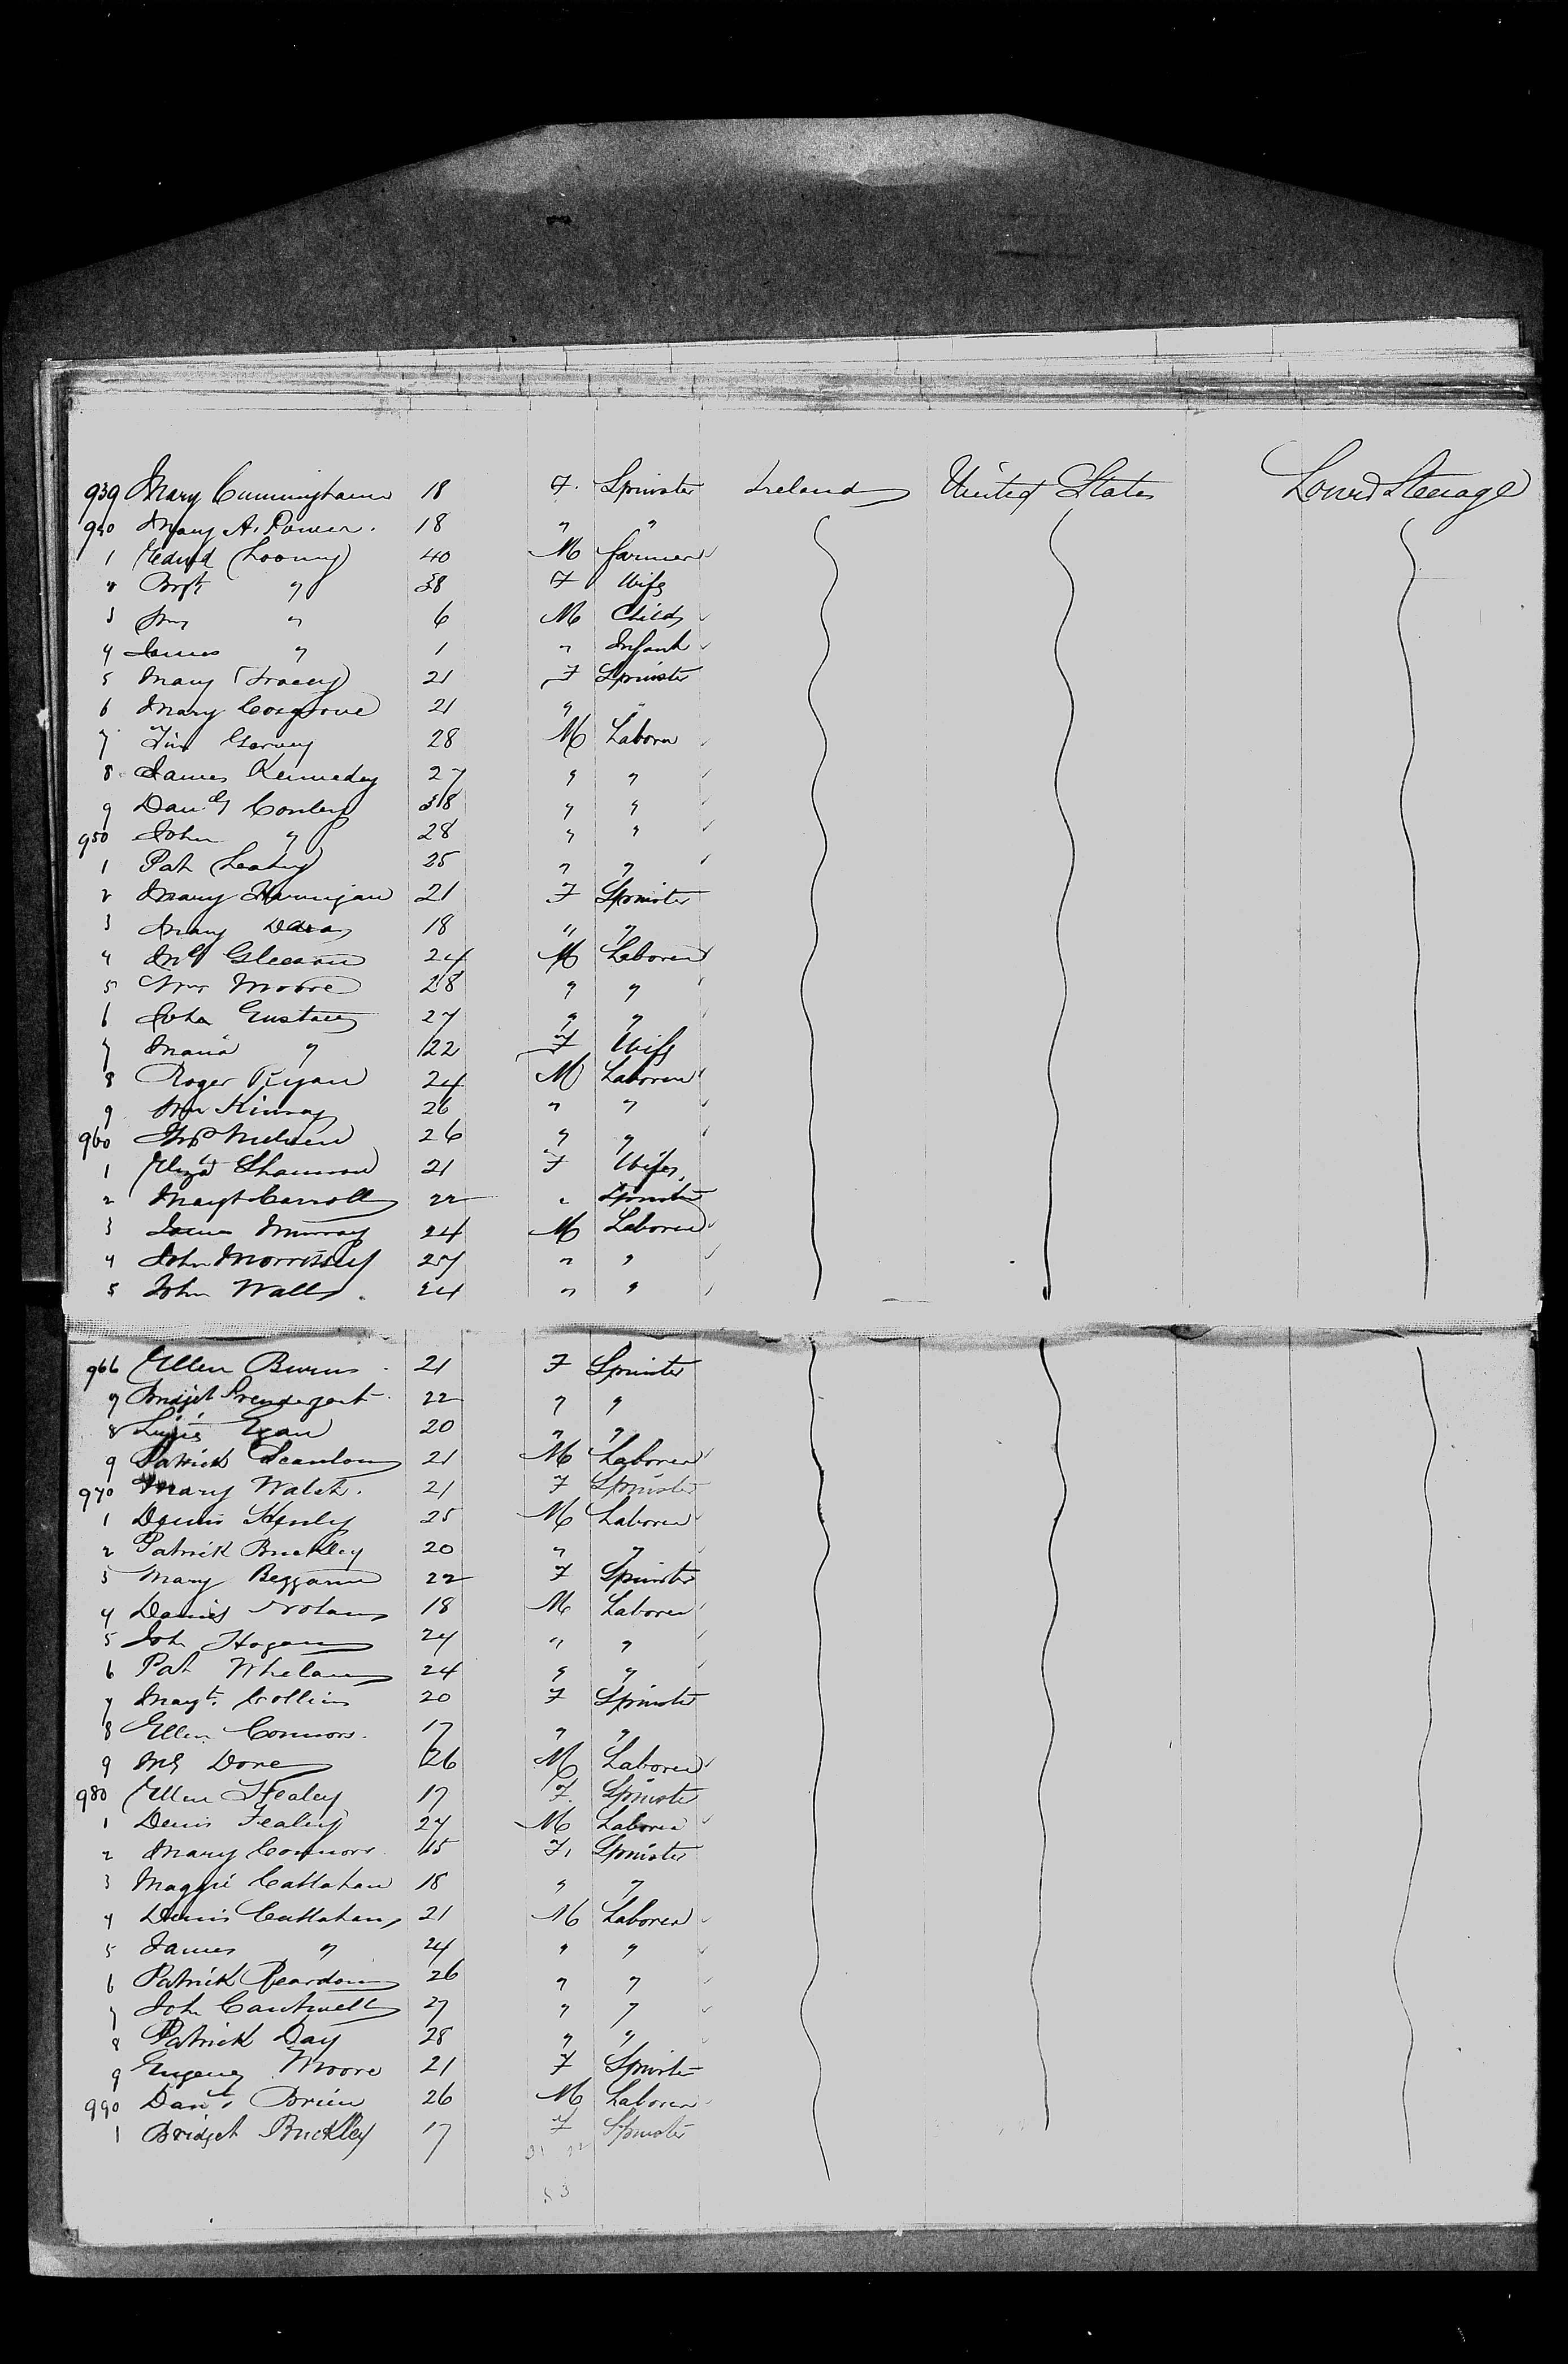 939 Mary Cunningham 18 F. Spinster Ireland United States Lower Steerage
940 Mary A. Power. 18 " "
1 Edwd Looney 40 M farmer
2 Brgt " 38 F Wife
3 Wm " 6 M Child
4 James " 1 " Infant
5 Mary Tracey 21 F Spinster
6 Mary Cosgrove 21 " "
7 Tim Garvey 28 M Laborer
8 James Kennedy 27 " "
9 Danl Conley 38 " "
950 John " 28 " "
1 Pat Leahy 25 " "
2 Mary Hannigan 21 F Spinster
3 Mary 18 " "
4 Ml Gleeson 24 M Laborer
5 Wm Moore 28 " "
6 John Eustace 27 " "
7 Maria " 22 F Wife
8 Roger Ryan 24 M Laborer
9 Wm Kinsay 26 " "
960 26 " "
1 Eliza Shannon 21 F Wife
2 Margt Carroll 22 " Spinster
3 James Murray 24 M Laborer
4 John Morrissey 27 " "
5 John Wall 24 " "
966 Ellen Burns 21 F Spinster
7 Bridget Prendergast 22 " "
8 Lizzie Egan 20 " "
9 Patrick Scanlon 21 M Laborer
970 Mary Walsh. 21 F Spinster
1 Dennis Henly 25 M Laborer
2 Patrick Buckley 20 " "
3 Mary Beggann 22 F Spinster
4 Daniel Nolan 18 M Laborer
5 John Hogan 24 " "
6 Pat Whelan 24 " "
7 Margt. Collins 20 F Spinster
8 Ellen Connors. 17 " "
9 Ml Dore 26 M Laborer
980 Ellen Fealey 17 F. Spinster
1 Denis Fealey 27 M Laborer
2 Mary Connors 15 F. Spinster
3 Maggie Callahan 18 " "
4 Denis Callahan 21 M Laborer
5 James " 24 " "
6 Patrick Reardon 26 " "
7 John Cantwell 27 " "
8 Patrick Day 28 " "
9 Eugeny Moore 21 F Spinster
990 Danl. Brien 26 M Laborer
1 Bridget Buckley 17 F Spinster
31 22
53